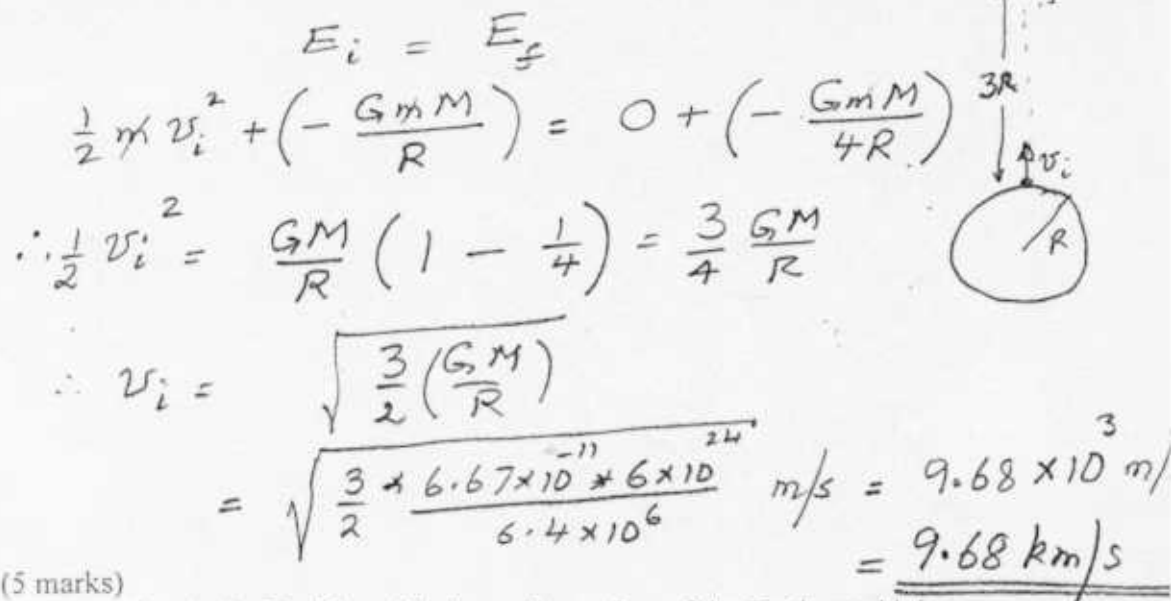 E_i = E_f
½ m v_i² + (- GmM/R) = 0 + (- GmM/4R)
3R
v_i
R
∴ ½ v_i² = GM/R (1 - 1/4) = 3/4 GM/R
∴ v_i = √(3/2 (GM/R))
= √(3/2 * 6.67×10⁻¹¹ * 6×10²⁴ / 6.4×10⁶) m/s = 9.68 ×10³ m/
= 9.68 km/s
(5 marks)